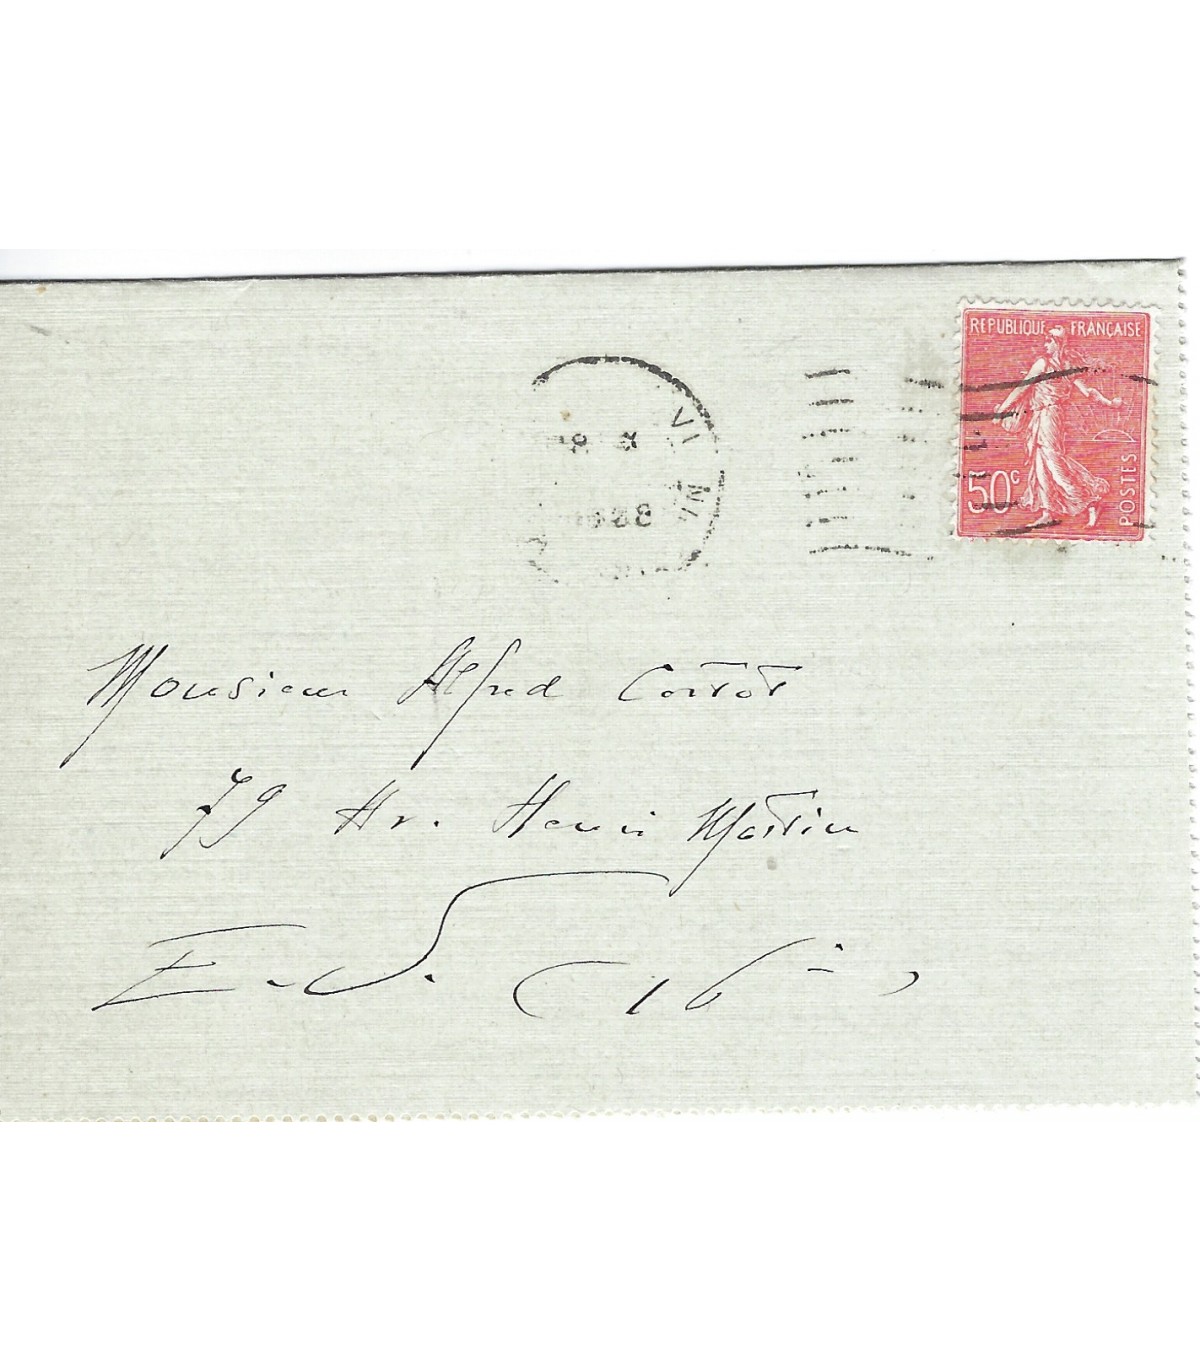 REPUBLIQUE FRANÇAISE
50c
POSTES
Monsieur Alfred Cortot
79 Av. Henri Martin
E.V. (16e)